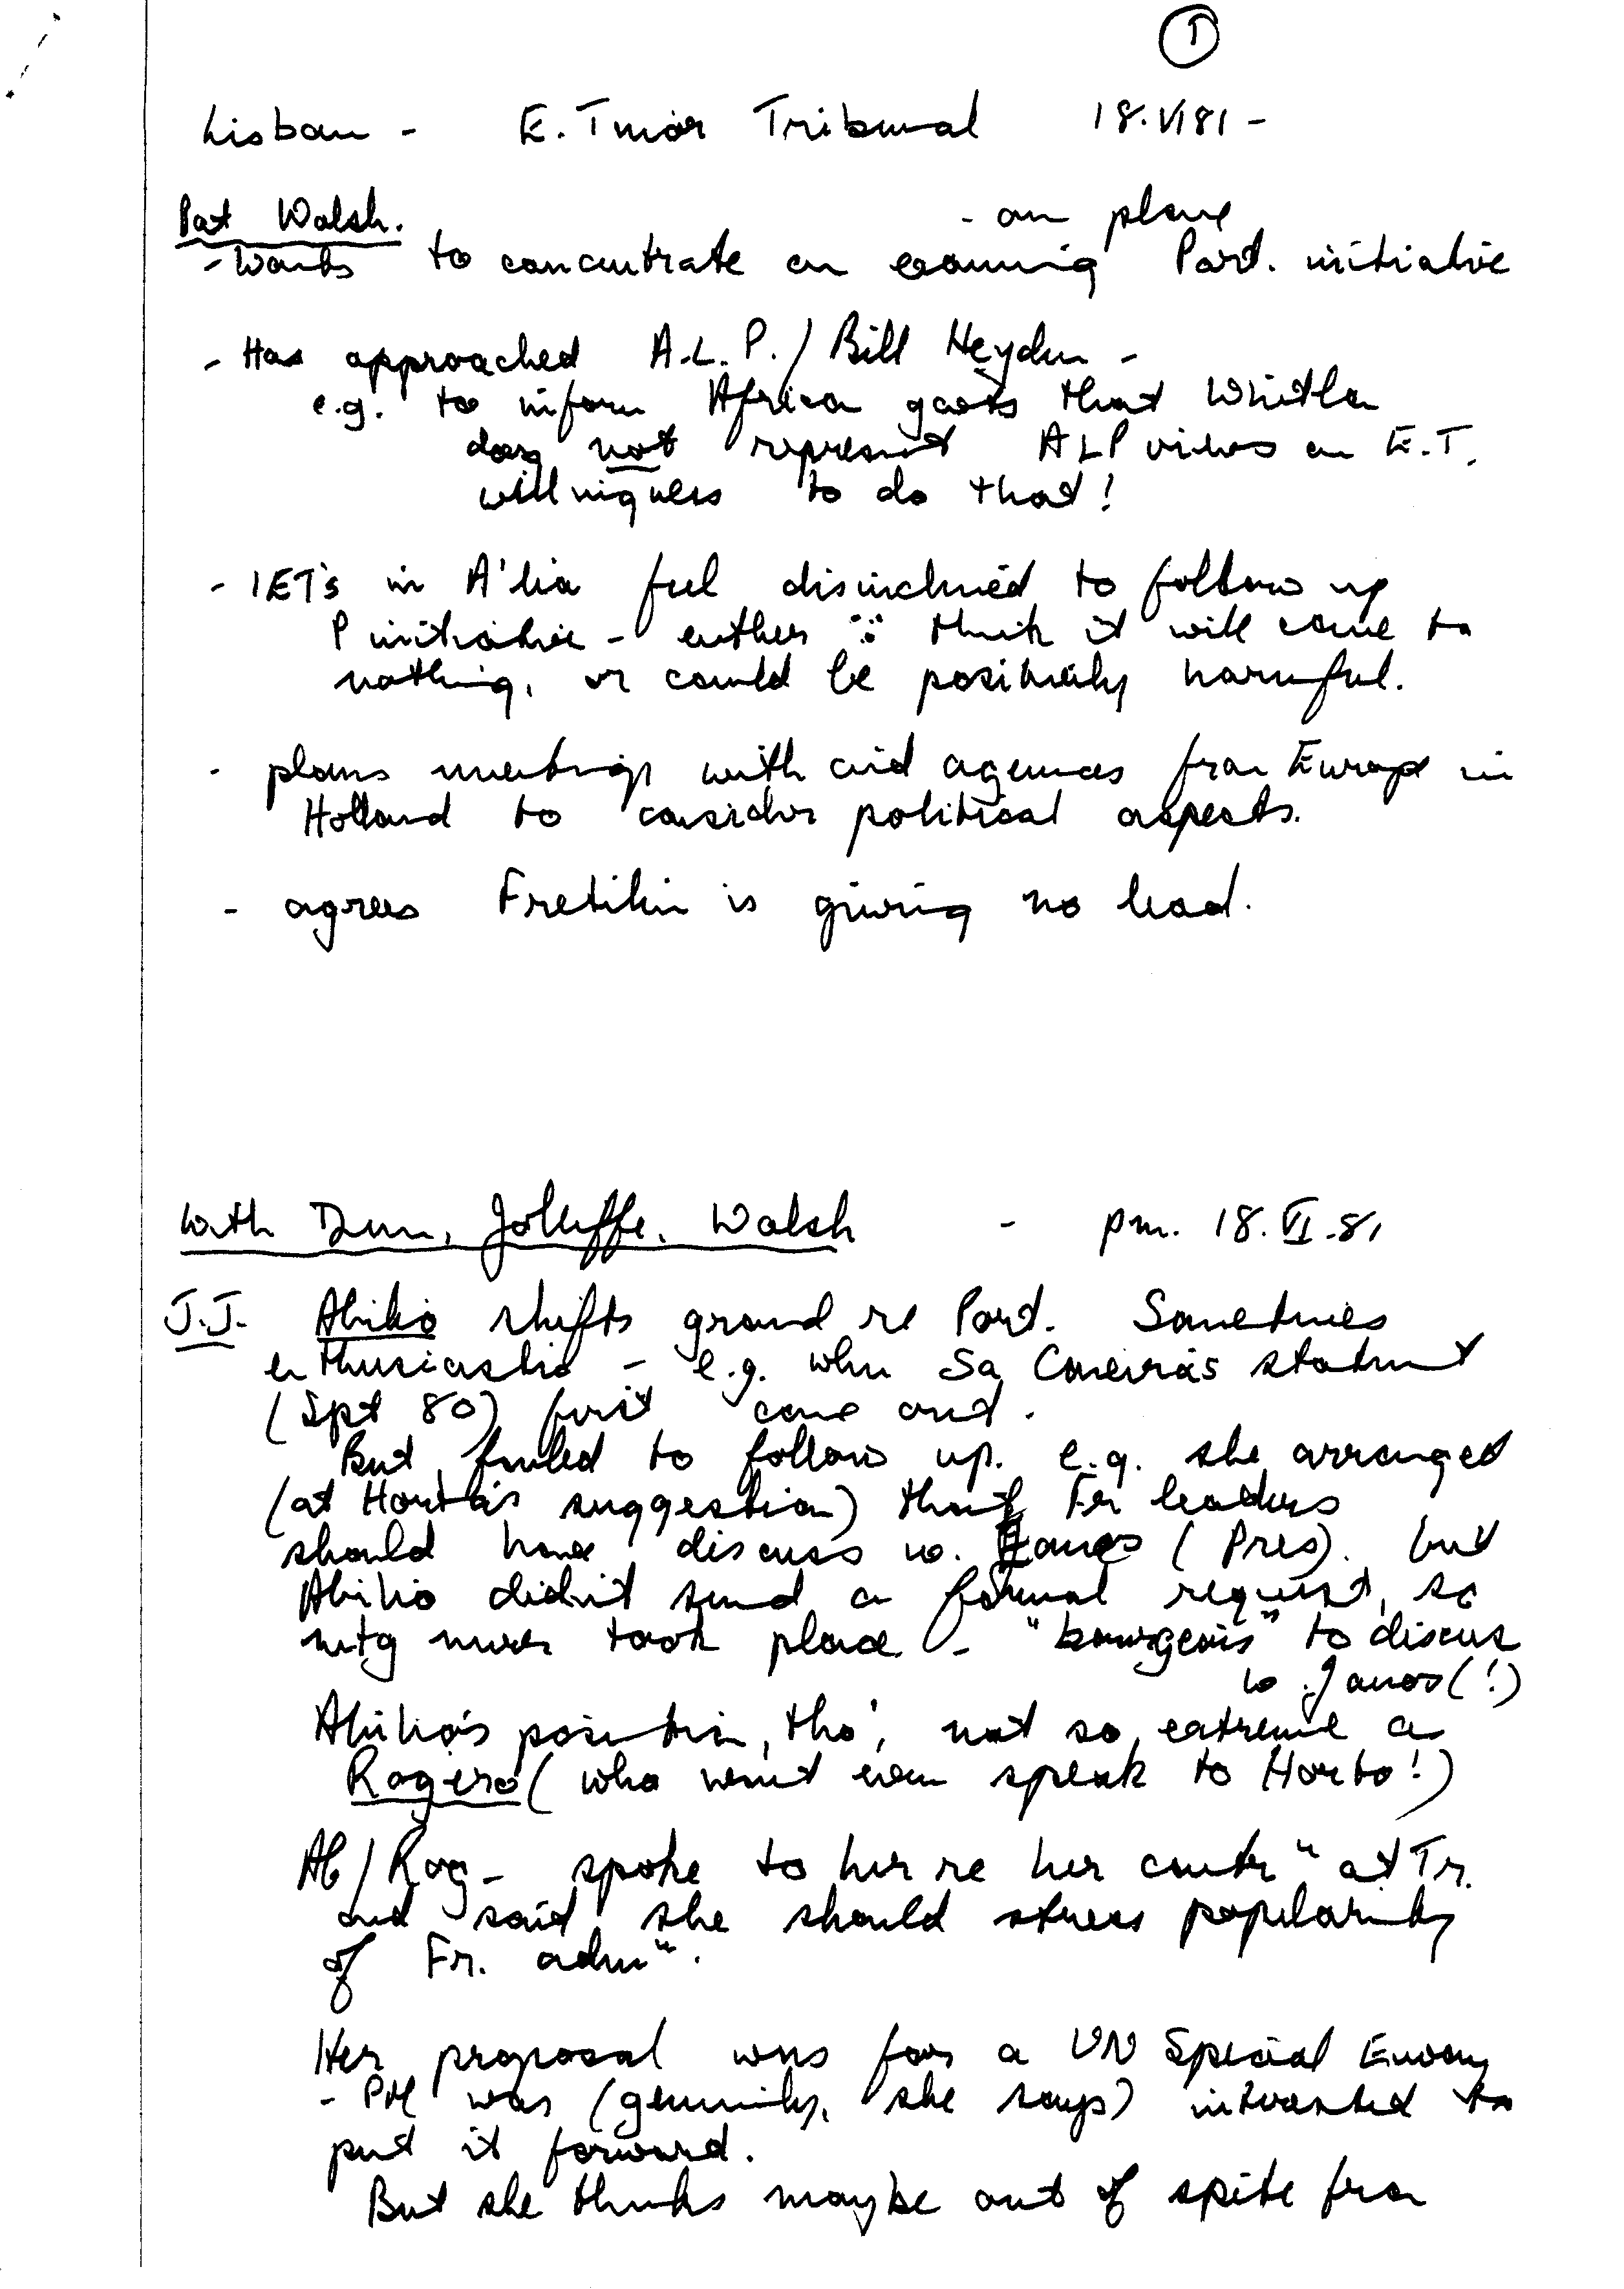 ①
Lisbon - E. Timor Tribunal 18.VI 81 -
Pat Walsh. - on plane
- Wants to concentrate on examining Port. initiative
- Has approached A.L.P. / Bill Heyden -
e.g. to inform Africa govts that Whitlam
does not represent ALP views on E.T.
willingness to do that!
- IETs in A'lia feel disinclined to follow up
P initiative - either ∵ think it will come to
nothing, or could be positively harmful.
- plans meetings with aid agencies from Europe in
Holland to consider political aspects.
- agrees Fretilin is giving no lead.
With Dunn, Jolliffe, Walsh - pm. 18.VI.81
J.J. Abilio shifts ground re Port. Sometimes
enthusiastic - e.g. when Sa Carneira's statmt
(Spt 80) first came out.
But failed to follow up. e.g. she arranged
(at Horta's suggestion) that Fr leaders
should have discuss w. Eanes (Pres). but
Abilio didn't send a formal request, so
mtg never took place - "bourgeois" to discuss
w. (!)
Abilio's position, tho', not so extreme a
Rogerio (who won't even speak to Horta!)
Ab / Rog - spoke to her re her contrn at Tr.
and said she should stress popularity
of Fr. admn.
Her proposal was for a UN Special Envoy
- PM was (genuinely, she says) interested to
put it forward.
But she thinks maybe out of spite from